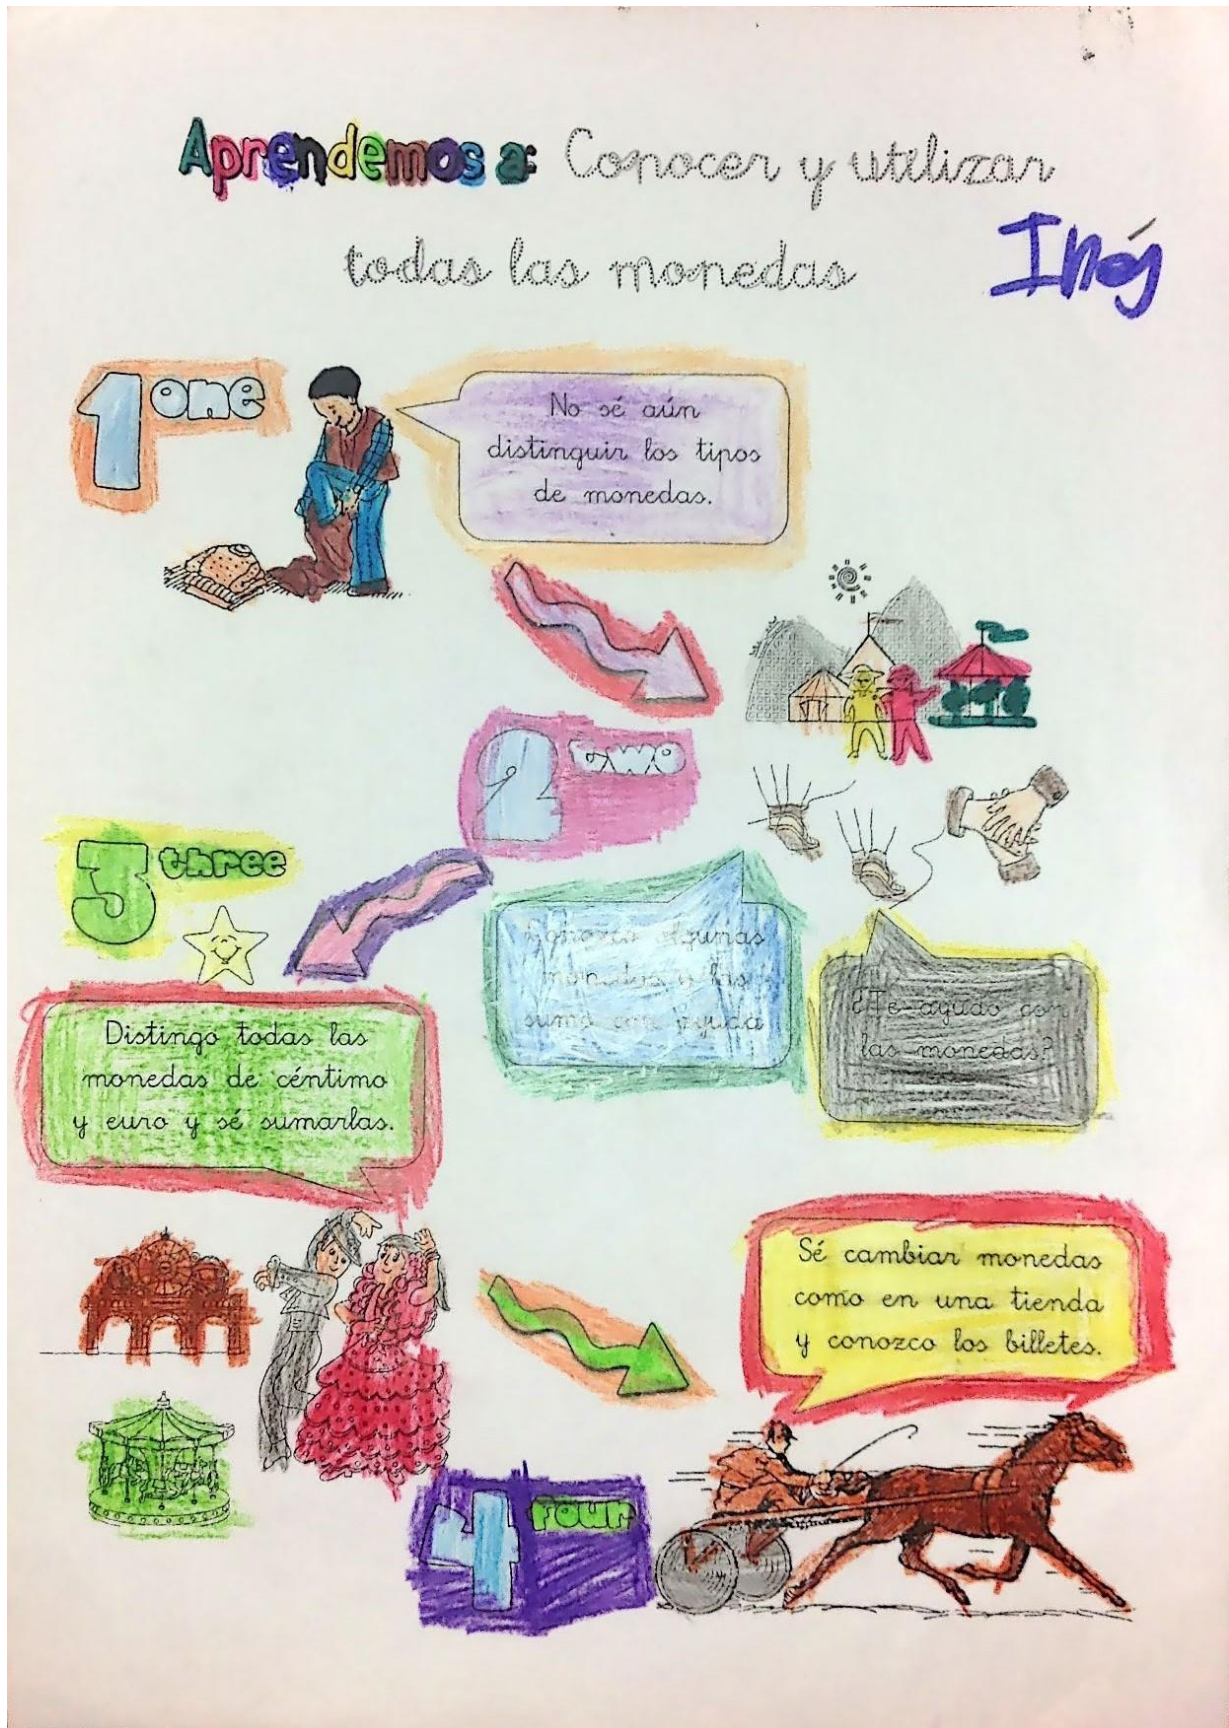 Aprendemos a: Conocer y utilizar
todas las monedas
Inés
1 one
No sé aún
distinguir los tipos
de monedas.
2 two
Conozco algunas
monedas y las
sumo con ayuda
¿Te ayudo con
las monedas?
3 three
Distingo todas las
monedas de céntimo
y euro y sé sumarlas.
Sé cambiar monedas
como en una tienda
y conozco los billetes.
4 four